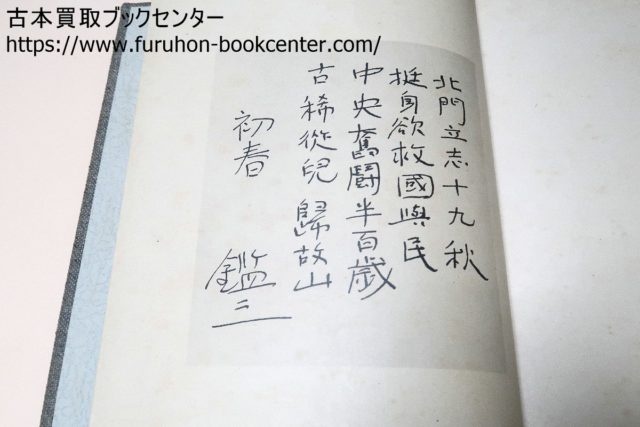 古本買取ブックセンター
https://www.furuhon-bookcenter.com/
北門立志十九秋
挺身欲救國與民
中央奮闘半百歳
古稀從兒歸故山
初春 鑑三